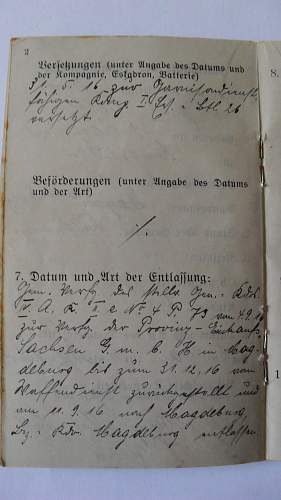 2
Versetzungen (unter Angabe des Datums und
der Kompagnie, Eskadron, Batterie)
31. 5. 16 zur Garnisondienst
fähigen Komp. I. Ers. Btl. 26
versetzt
Beförderungen (unter Angabe des Datums
und der Art)
./.
7. Datum und Art der Entlassung:
Gem. Verfg. des stellv. Gen. Kdos
IV. A. K. II c No 4 P. 79 vom 7.9.16
zur Verfg. der Provinz-Einkauf
Sachsen G. m. b. H in Mag-
deburg bis zum 31.12.16 vom
Waffendienst zurückgestellt und
am 11.9.16 nach Magdeburg,
Bez. Kdo. Magdeburg entlassen
8.
1